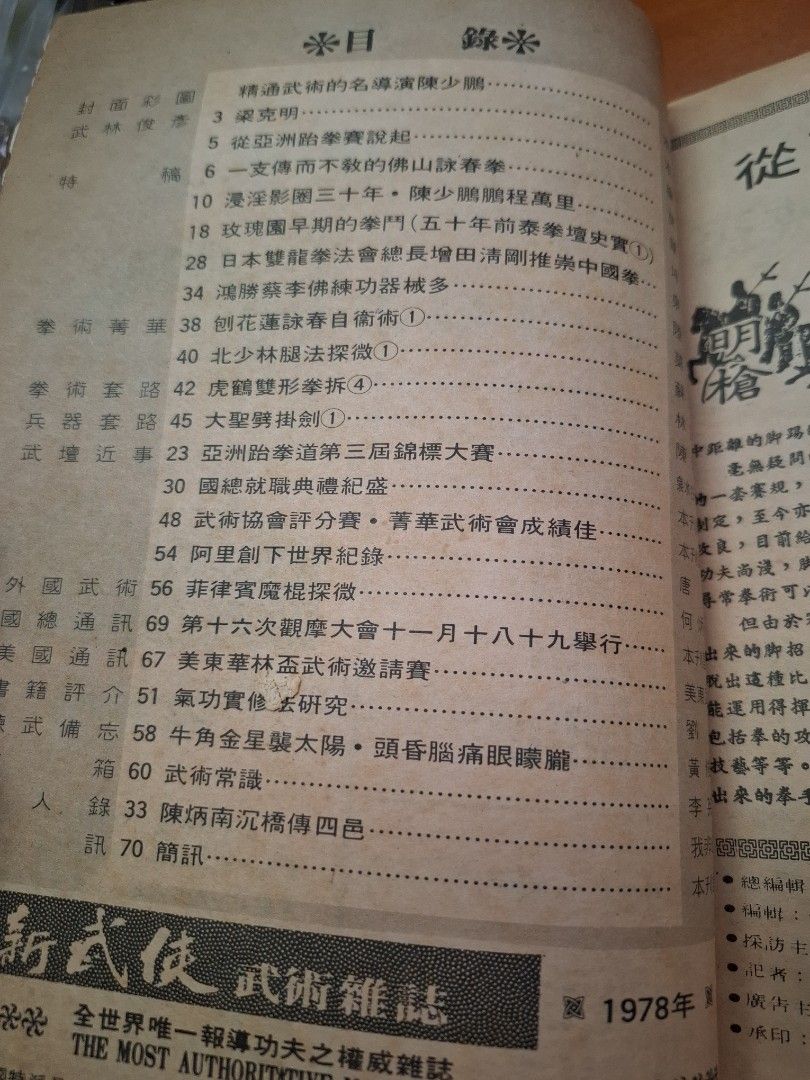 ※目 錄※
封面彩圖 精通武術的名導演陳少鵬
武林俊彥 3 梁克明
5 從亞洲跆拳賽說起
特稿 6 一支傳而不教的佛山詠春拳
10 浸淫影圈三十年·陳少鵬鵬程萬里
18 玫瑰園早期的拳鬥(五十年前泰拳壇史實①)
28 日本雙龍拳法會總長增田清剛推崇中國拳
34 鴻勝蔡李佛練功器械多
拳術菁華 38 刨花蓮詠春自衞術①
40 北少林腿法探微①
拳術套路 42 虎鶴雙形拳拆④
兵器套路 45 大聖劈掛劍①
武壇近事 23 亞洲跆拳道第三屆錦標大賽
30 國總就職典禮紀盛
48 武術協會評分賽·菁華武術會成績佳
54 阿里創下世界紀錄
外國武術 56 菲律賓魔棍探微
國總通訊 69 第十六次觀摩大會十一月十八十九舉行
美國通訊 67 美東華林盃武術邀請賽
書籍評介 51 氣功實修法研究
武備忘 58 牛角金星襲太陽·頭昏腦痛眼矇朧
箱 60 武術常識
人錄 33 陳炳南沉橋傳四邑
訊 70 簡訊
新武俠 武術雜誌
1978年
全世界唯一報導功夫之權威雜誌
THE MOST AUTHORITATIVE
從
明
槍
中距離的脚踢
毫無疑問
的一套賽規，
制定，至今亦
改良，目前給
功夫尚淺，
尋常拳術可
但由於
出來的脚招
脫出這種比
能運用得揮
包括拳的攻
技藝等等。
出來的拳手
●總編輯
●編輯：
●採訪主
●記者：
●廣告主
●承印：